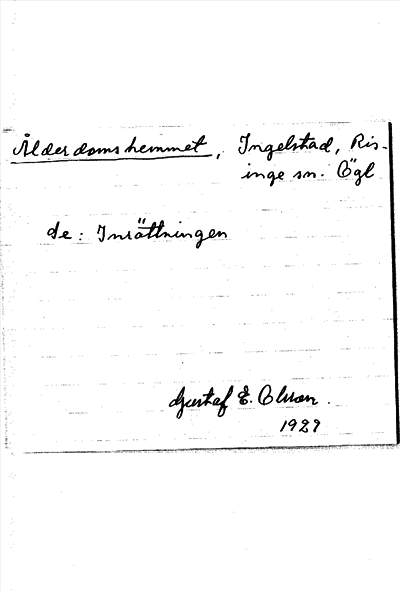 Ålderdomshemmet, Ingelstad, Ris-
inge sn. Ögl
Se: Inrättningen
Gustaf E. Olsson.
1929